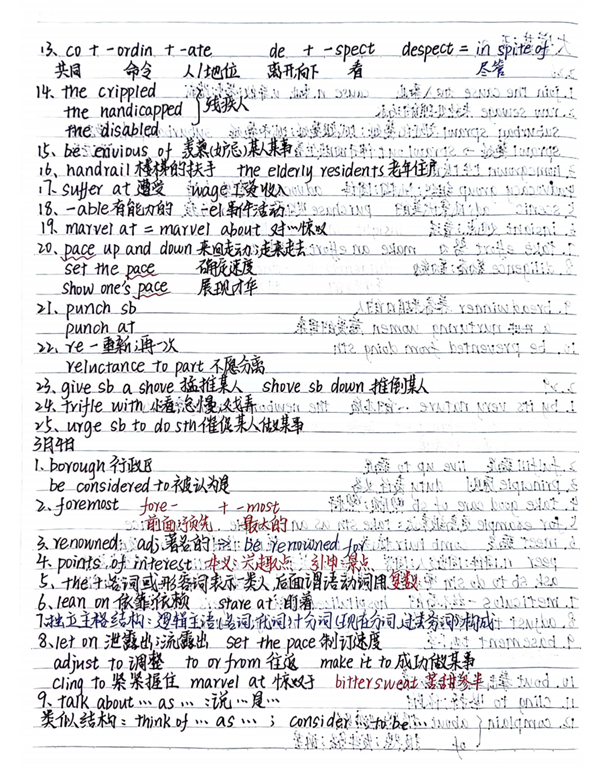 13. co + -ordin + -ate de + -spect despect = in spite of
共同 命令 人/地位 离开向下 看 尽管
14. the crippled
the handicapped 残疾人
the disabled
15. be envious of 羡慕(妒忌)某人某事
16. handrail 楼梯的扶手 the elderly residents 老年住户
17. suffer at 遭受 wage 工资收入
18. -able 有能力的 -el 动作活动
19. marvel at = marvel about 对…惊叹
20. pace up and down 来回走动;走来走去
set the pace 确定速度
show one's pace 展现才华
21. punch sb
punch at
22. re - 重新;再一次
reluctance to part 不愿分离
23. give sb a shove 猛推某人 shove sb down 推倒某人
24. trifle with 小看;怠慢;戏弄
25. urge sb to do sth 催促某人做某事
3月4日
1. borough 行政区
be considered to 被认为是
2. foremost fore- + -most
前面;预先 最大的
3. renowned: adj 著名的 → be renowned for
4. points of interest 本义:兴趣点 引申:景点
5. the + 名词或形容词表示一类人,后面谓语动词用复数
6. lean on 依靠;依赖 stare at 盯着
7. 独立主格结构:逻辑主语(名词、代词)+分词(现在分词、过去分词)构成
8. let on 泄露出;流露出 set the pace 制订速度
adjust to 调整 to or from 往返 make it to 成功做某事
cling to 紧紧握住 marvel at 惊叹于 bittersweat 苦甜参半
9. talk about … as … :说…是…
类似结构:think of … as … ; consider … to be …